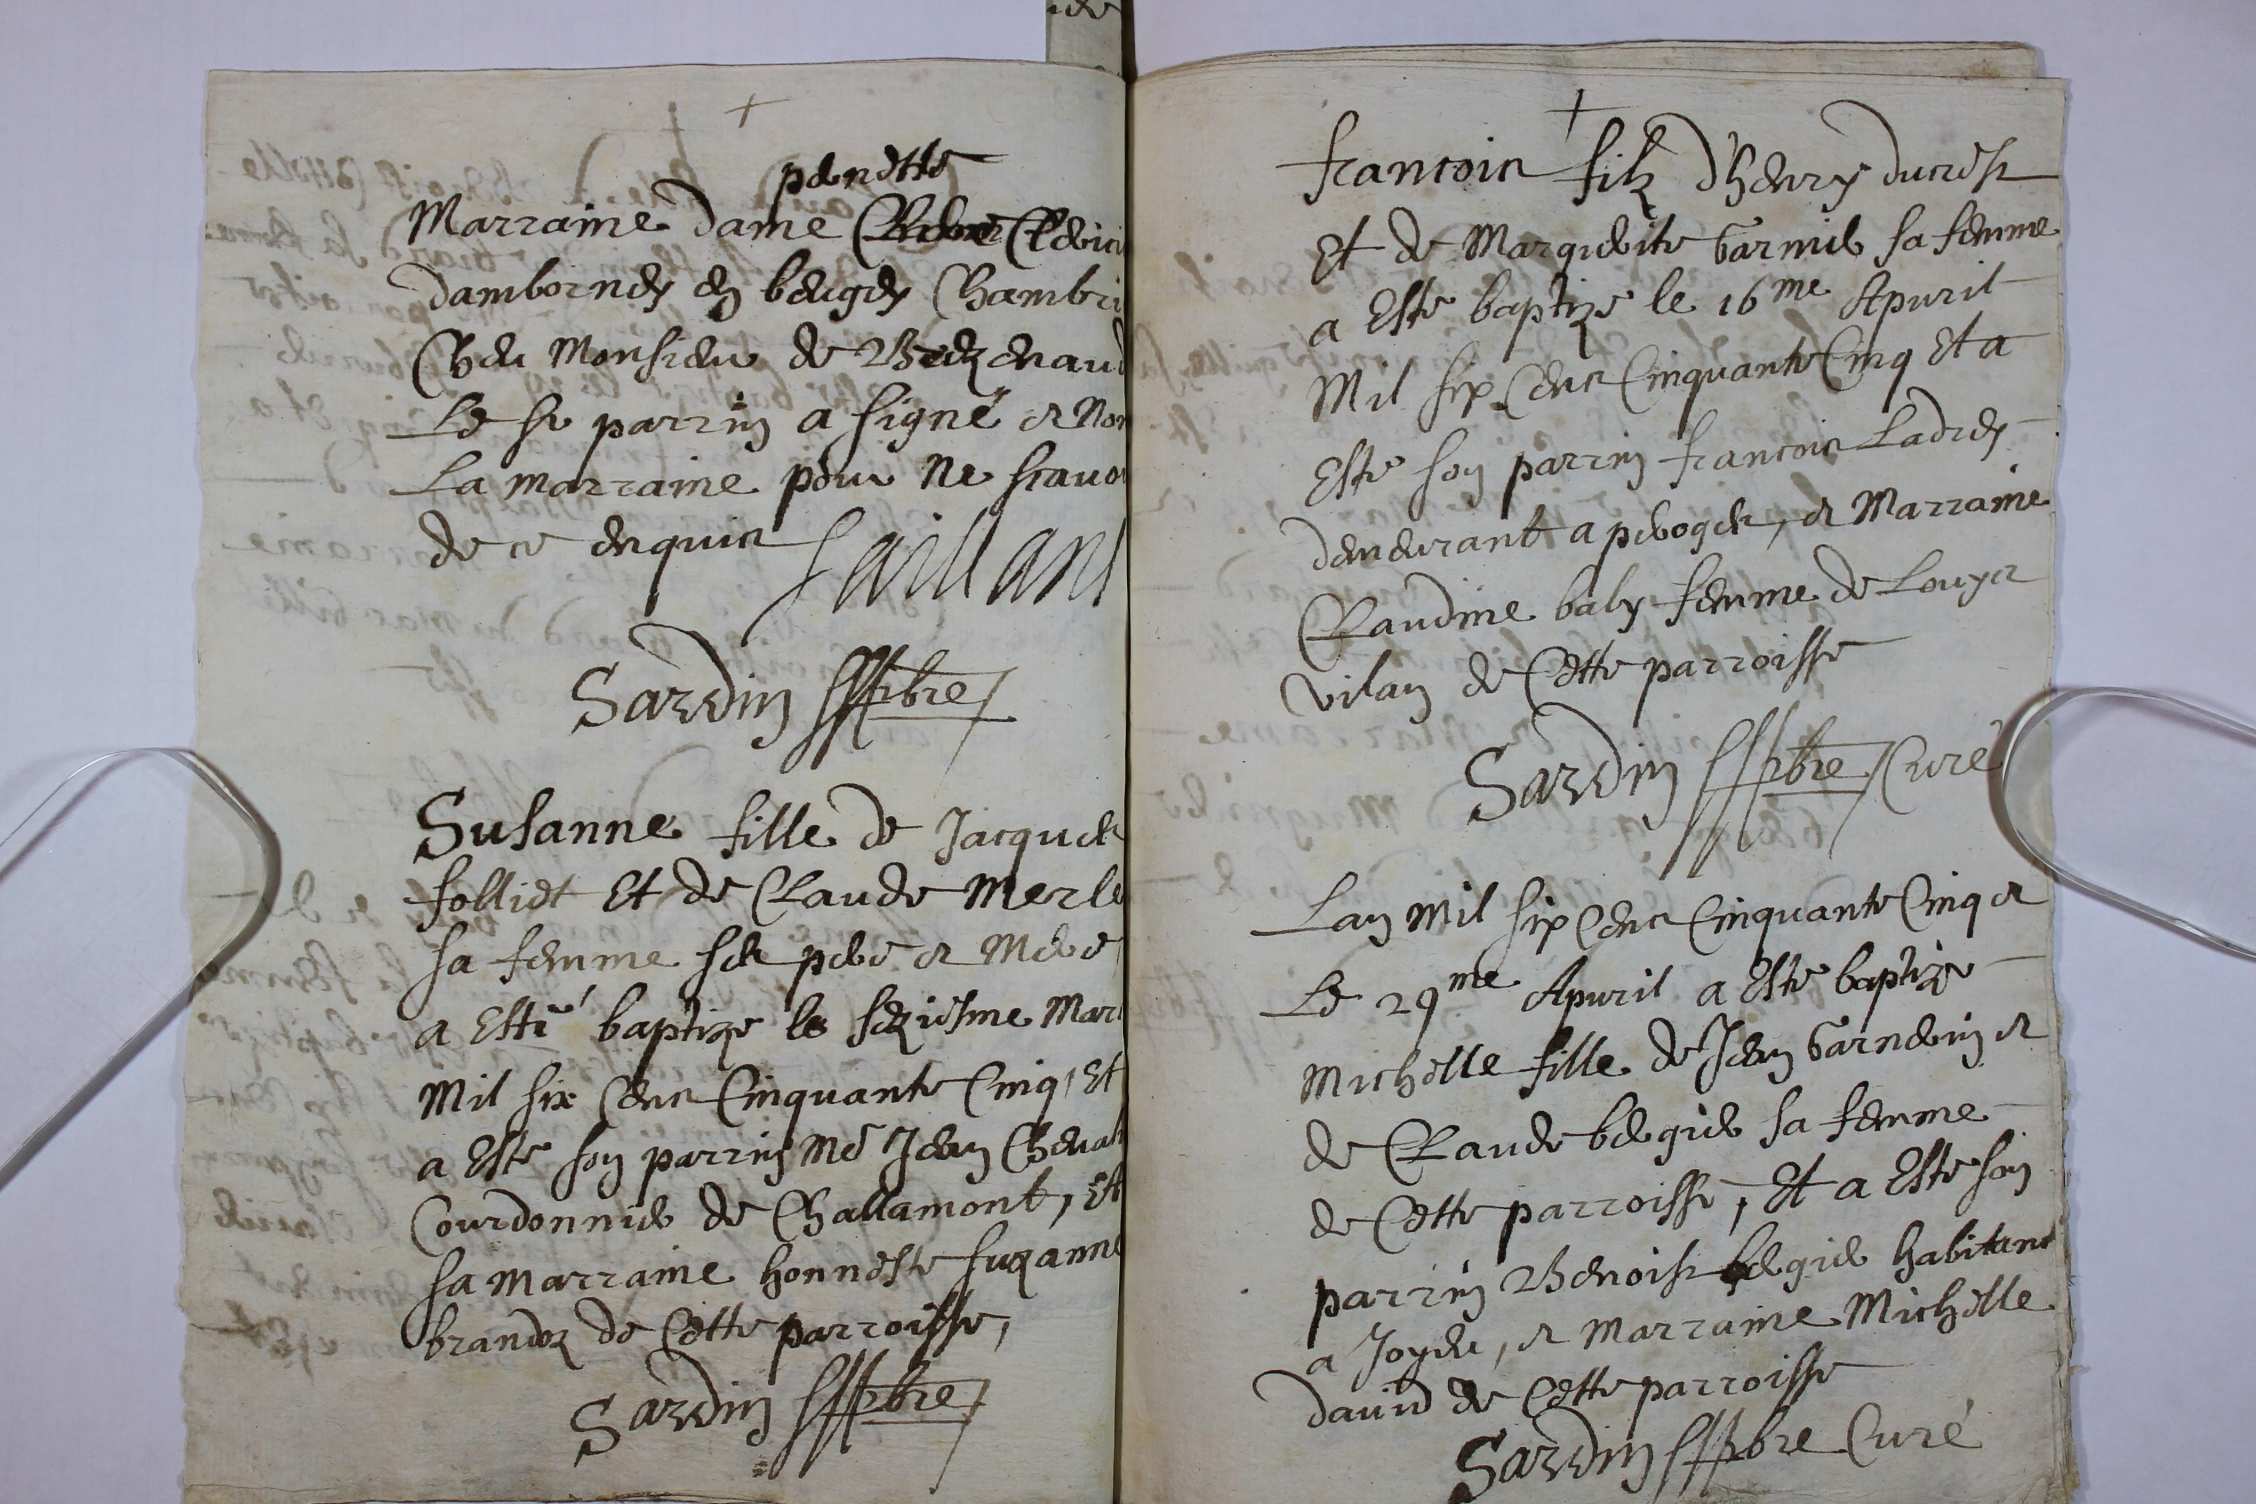 +
perrette
Marraine dame Clerici
damborney en beugey Chambri
Cheu Monsieur de Brezenaud
Le sr parrin a signé et Non
La marraine pour Ne scauo
de ce enquis Gaillard
Sardin pbre
Susanne fille de Jacques
folliet Et de Claude Merle
sa femme ses pere et Mere
a Esté baptize le seziesme Mars
Mil six Cens Cinquante Cinq, Et
a Este son parrin Me Jean Cheual
Courdonnier de Challamont, Et
sa Marraine honneste suzanne
brandoz de Cette parroisse,
Sardin pbre
+
francois filz d'henry ducrest
Et de Marguerite Garnier sa femme
a Este baptize le 16me Apuril
Mil six Cens Cinquante Cinq Et a
Este son parrin francois Ladrey
demeurant a peroges, et Marraine
Claudine baly femme de Louys
vilan de Cette parroisse
Sardin pbre Curé
Lan Mil six Cens Cinquante Cinq et
Le 29me Apuril a Este baptize
Michelle fille de Jean Garnerin et
de Claude begier sa femme
de Cette parroisse, Et a Este son
parrin Benoist begier habitant
a Joyeu, et Marraine Michelle
david de Cette parroisse
Sardin pbre Curé